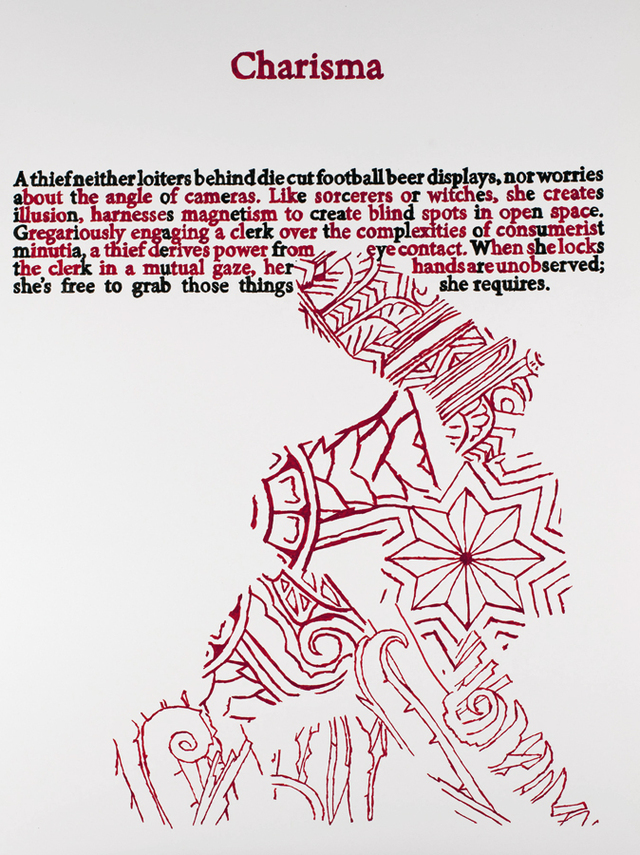 Charisma
A thief neither loiters behind die cut football beer displays, nor worries
about the angle of cameras. Like sorcerers or witches, she creates
illusion, harnesses magnetism to create blind spots in open space.
Gregariously engaging a clerk over the complexities of consumerist
minutia, a thief derives power from eye contact. When she locks
the clerk in a mutual gaze, her hands are unobserved;
she's free to grab those things she requires.